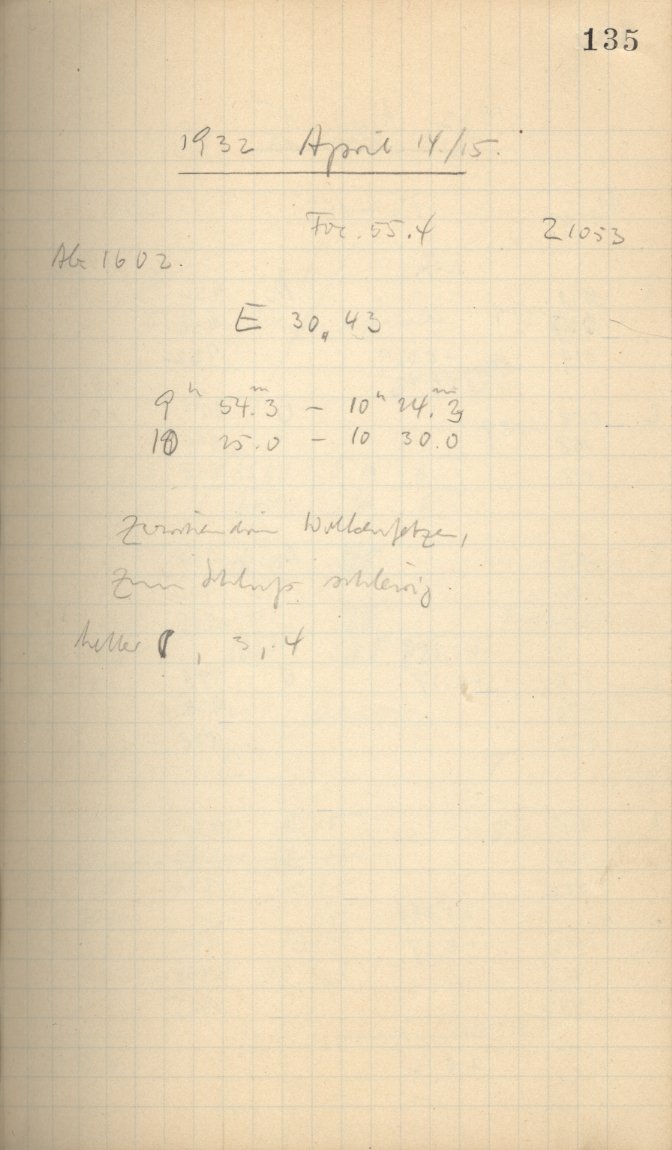 135
1932 April 14./15.
Foc. 55.4 21053
1602.
E 30,43
9ʰ 54.ᵐ3 – 10ʰ 24.ᵐ3
10 25.0 – 10 30.0
Zwischendrin Wolkenfetzen,
Zum Schluß schleirig.
heller , 3, 4